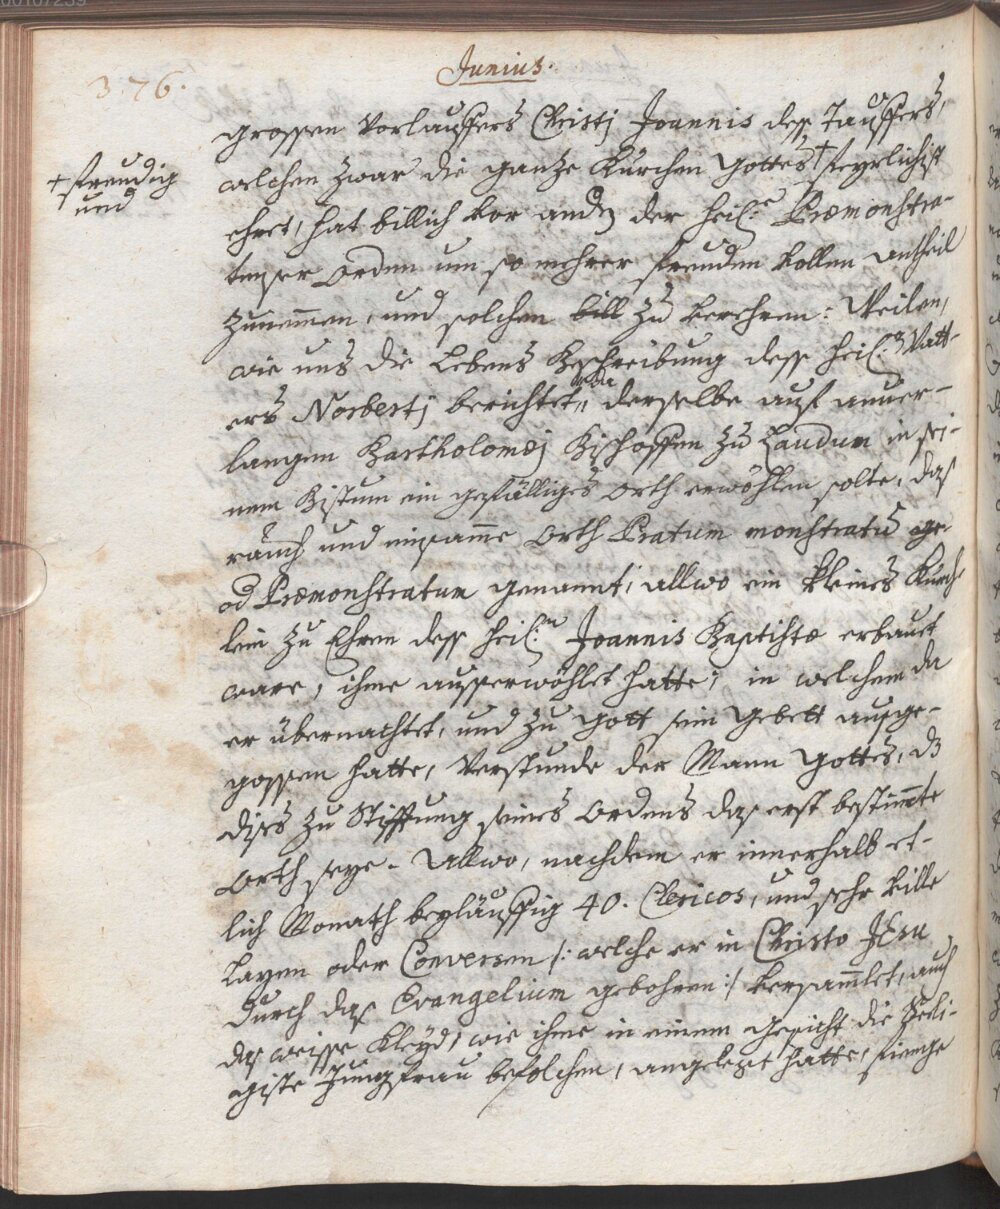 00107239
376.
Junius.
grossen Vorlauffers Christj Joannis dess Tauffers,
welchen zwar die gantze Kürchen Gottes † feyrlichist
† freudig
und
ehret, hat billich vor andn der heil.e Præmonstra-
tenser Orden um so mehrer freuden vollen antheil
zunemmen, und solchen bill zu verehren: Weilen,
wie uns die Lebens Beschreibung dess heil.en Vatt-
ers Norbertj berichtet, derselbe auf anver-
langen Bartholomæj Bischoffen zu Laudun in sei-
nem Bistum ein gefälliges orth erwöhlen solte, das
rauch und einsamme Orth Pratum monstratum ge
od Præmonstratum genannt, allwo ein kleines Kürch-
lein zu Ehren dess heil.en Joannis Baptistæ erbauet
ware, ihme ausserwöhlet hatte; in welchem da
er übernachtet, und zu Gott sein Gebett ausge-
gossen hatte, Verstunde der Mann Gottes, dz
dises zu Stifftung seines Ordens das erst bestimmte
Orth seye. Allwo, nachdem er innerhalb et-
lich Monath beyläuffig 40. Clericos, und sehr ville
Layen oder Conversen /: welche er in Christo JEsu
durch das Evangelium gebohren :/ versammlet, auch
das weisse Kleyd, wie ihme in einem Gesicht die Seeli-
giste Jungfrau befolchen, angelegt hatte, fienge